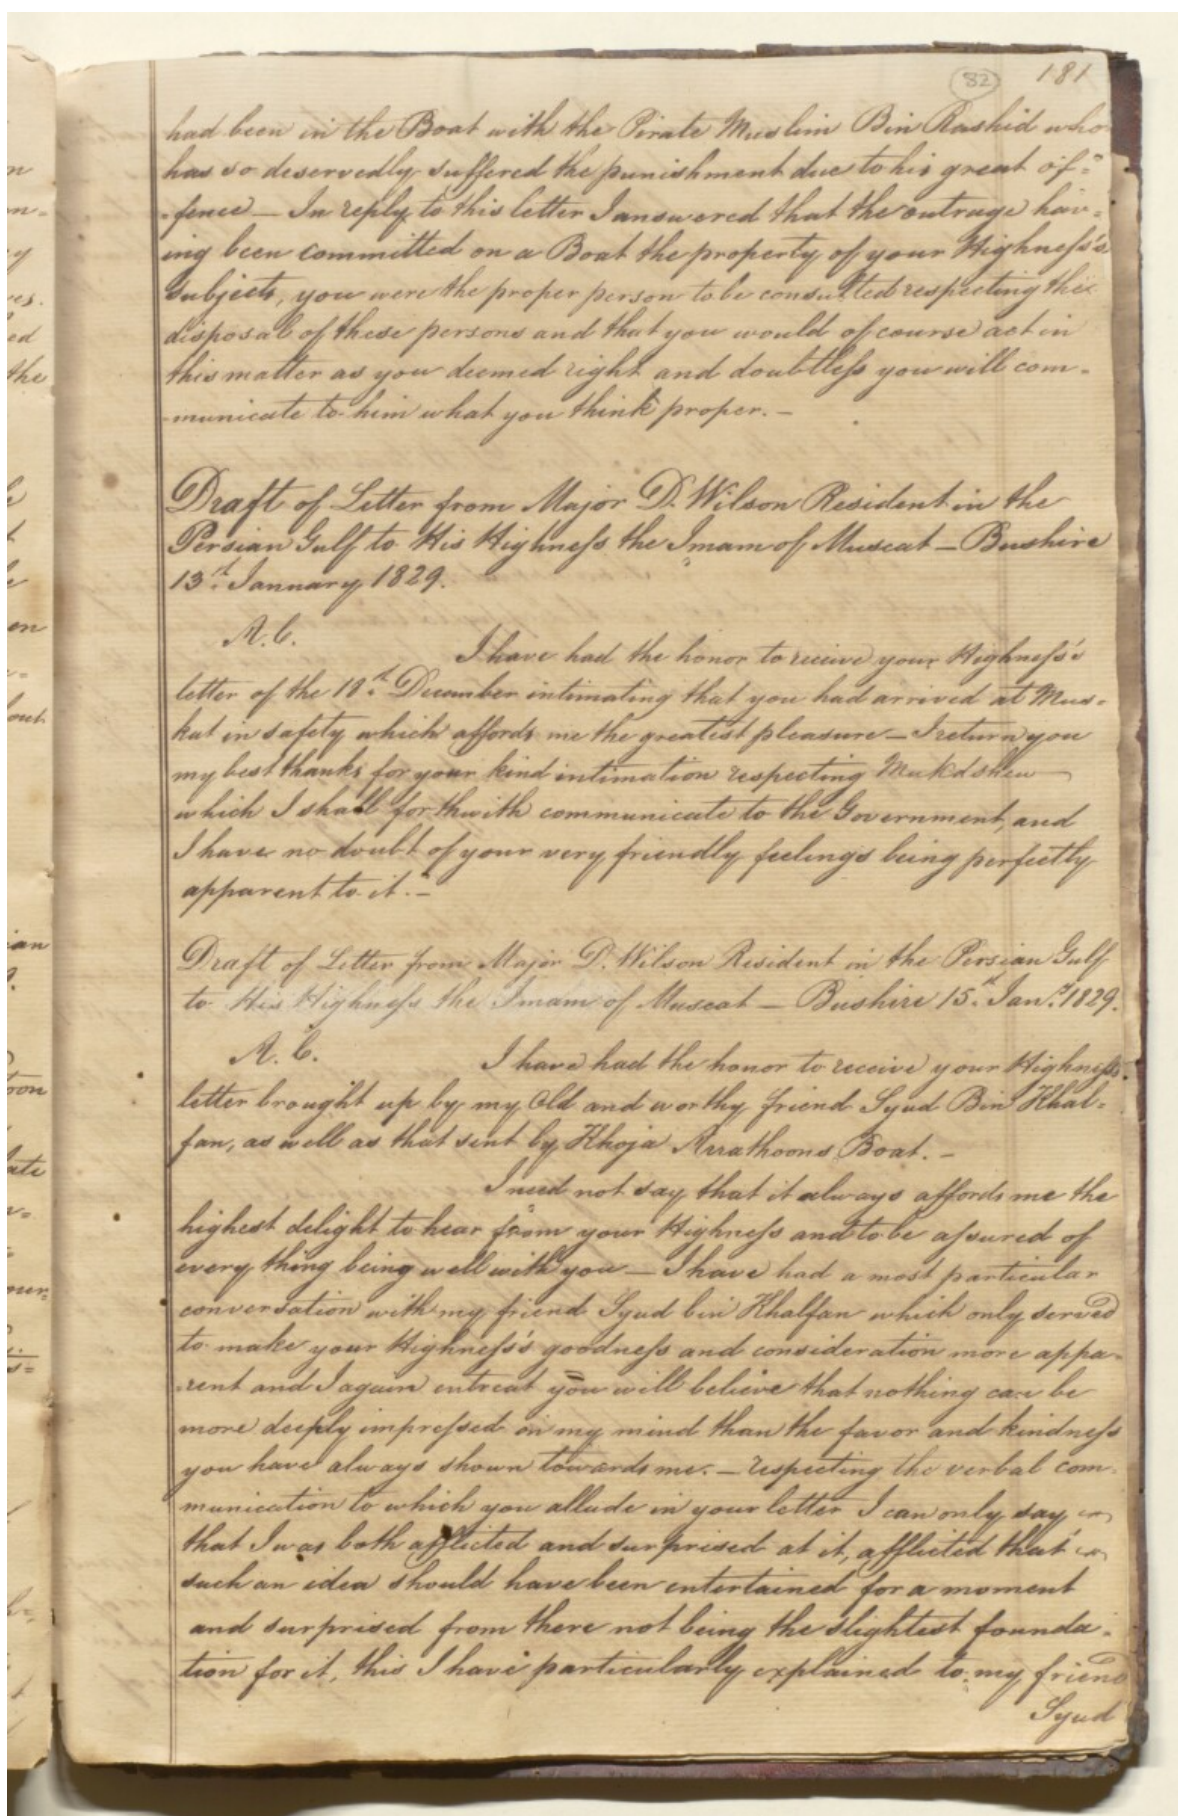 82 181
had been in the Boat with the Pirate Muslim Bin Rashid who
has so deservedly suffered the punishment due to his great of=
=fence — In reply to this letter I answered that the outrage hav=
ing been committed on a Boat the property of your Highness's
subjects, you were the proper person to be consulted respecting the
disposal of these persons and that you would of course act in
this matter as you deemed right and doubtless you will com=
=municate to him what you think proper. —
Draft of Letter from Major D. Wilson Resident in the
Persian Gulf to His Highness the Imam of Muscat — Bushire
13th January 1829.
A.C.
I have had the honor to receive your Highness's
letter of the 18th December intimating that you had arrived at Mus=
kat in safety which affords me the greatest pleasure — I return you
my best thanks for your kind intimation respecting
which I shall forthwith communicate to the Government, and
I have no doubt of your very friendly feelings being perfectly
apparent to it. —
Draft of Letter from Major D. Wilson Resident in the Persian Gulf
to His Highness the Imam of Muscat — Bushire 15th Jany. 1829.
A.C.
I have had the honor to receive your Highness.
letter brought up by my Old and worthy friend Syud Bin Khal=
fan, as well as that sent by Khoja Arrathoons Boat. —
I need not say that it always affords me the
highest delight to hear from your Highness and to be assured of
every thing being well with you — I have had a most particular
conversation with my friend Syud bin Khalfan which only served
to make your Highness's goodness and consideration more appa=
=rent and I again entreat you will believe that nothing can be
more deeply impressed on my mind than the favor and kindness
you have always shown towards me. — respecting the verbal com=
munication to which you allude in your letter I can only say
that I was both afflicted and surprised at it, afflicted that
such an idea should have been entertained for a moment
and surprised from there not being the slightest founda=
tion for it, this I have particularly explained to my friend
Syud